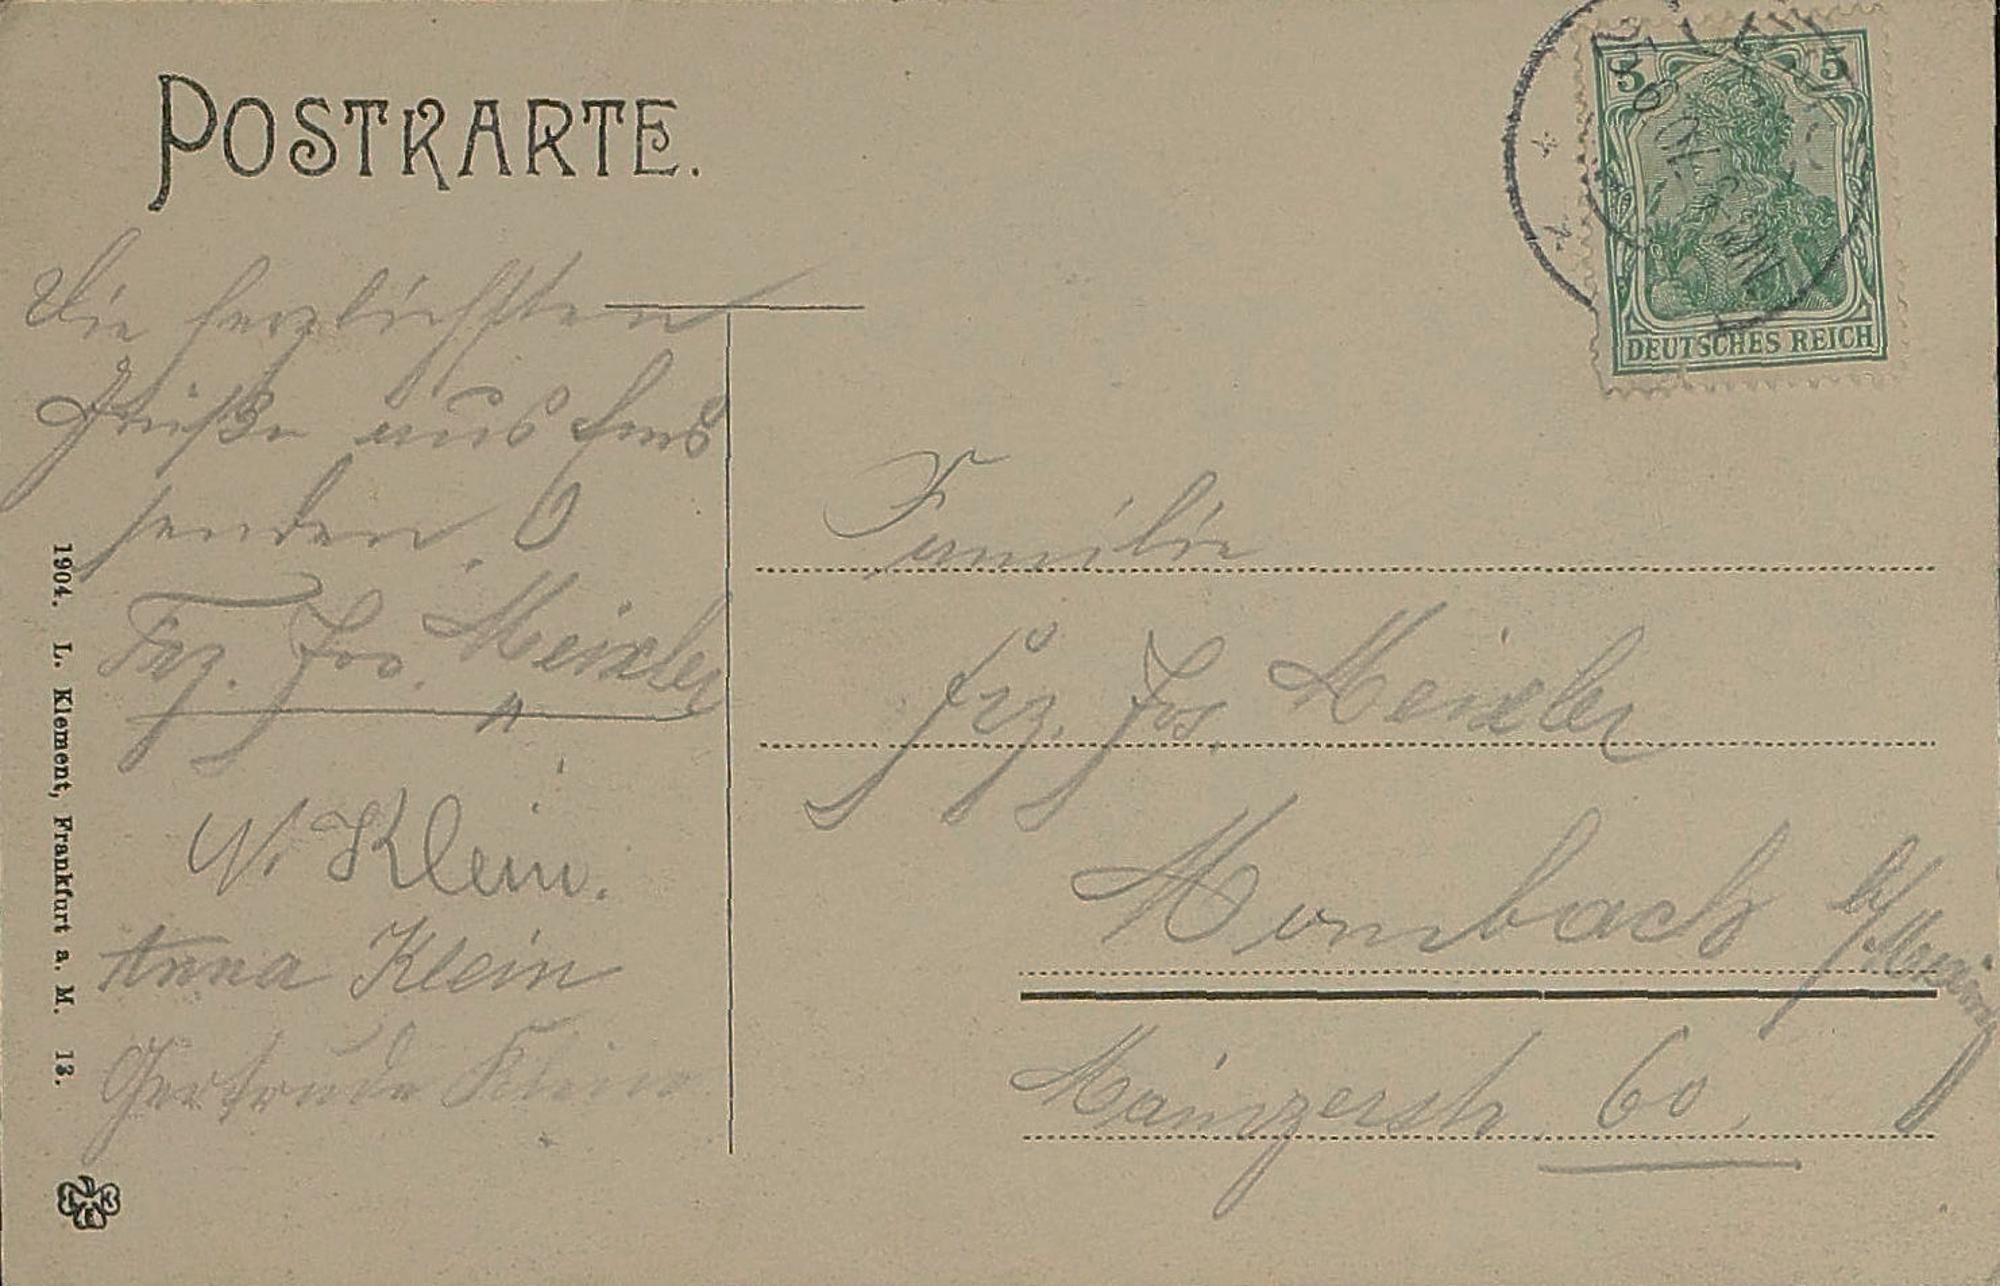 POSTKARTE.
5 5
DEUTSCHES REICH
Die herzlichsten
Grüße aus Ems
senden.
Frz. Jos. Meixler
N. Klein.
Anna Klein
Gertrude Klein
Familie
Frz. Jos. Meixler
Mombach b/Mainz
Mainzerstr. 60.
1904. L. Klement, Frankfurt a. M. 13.